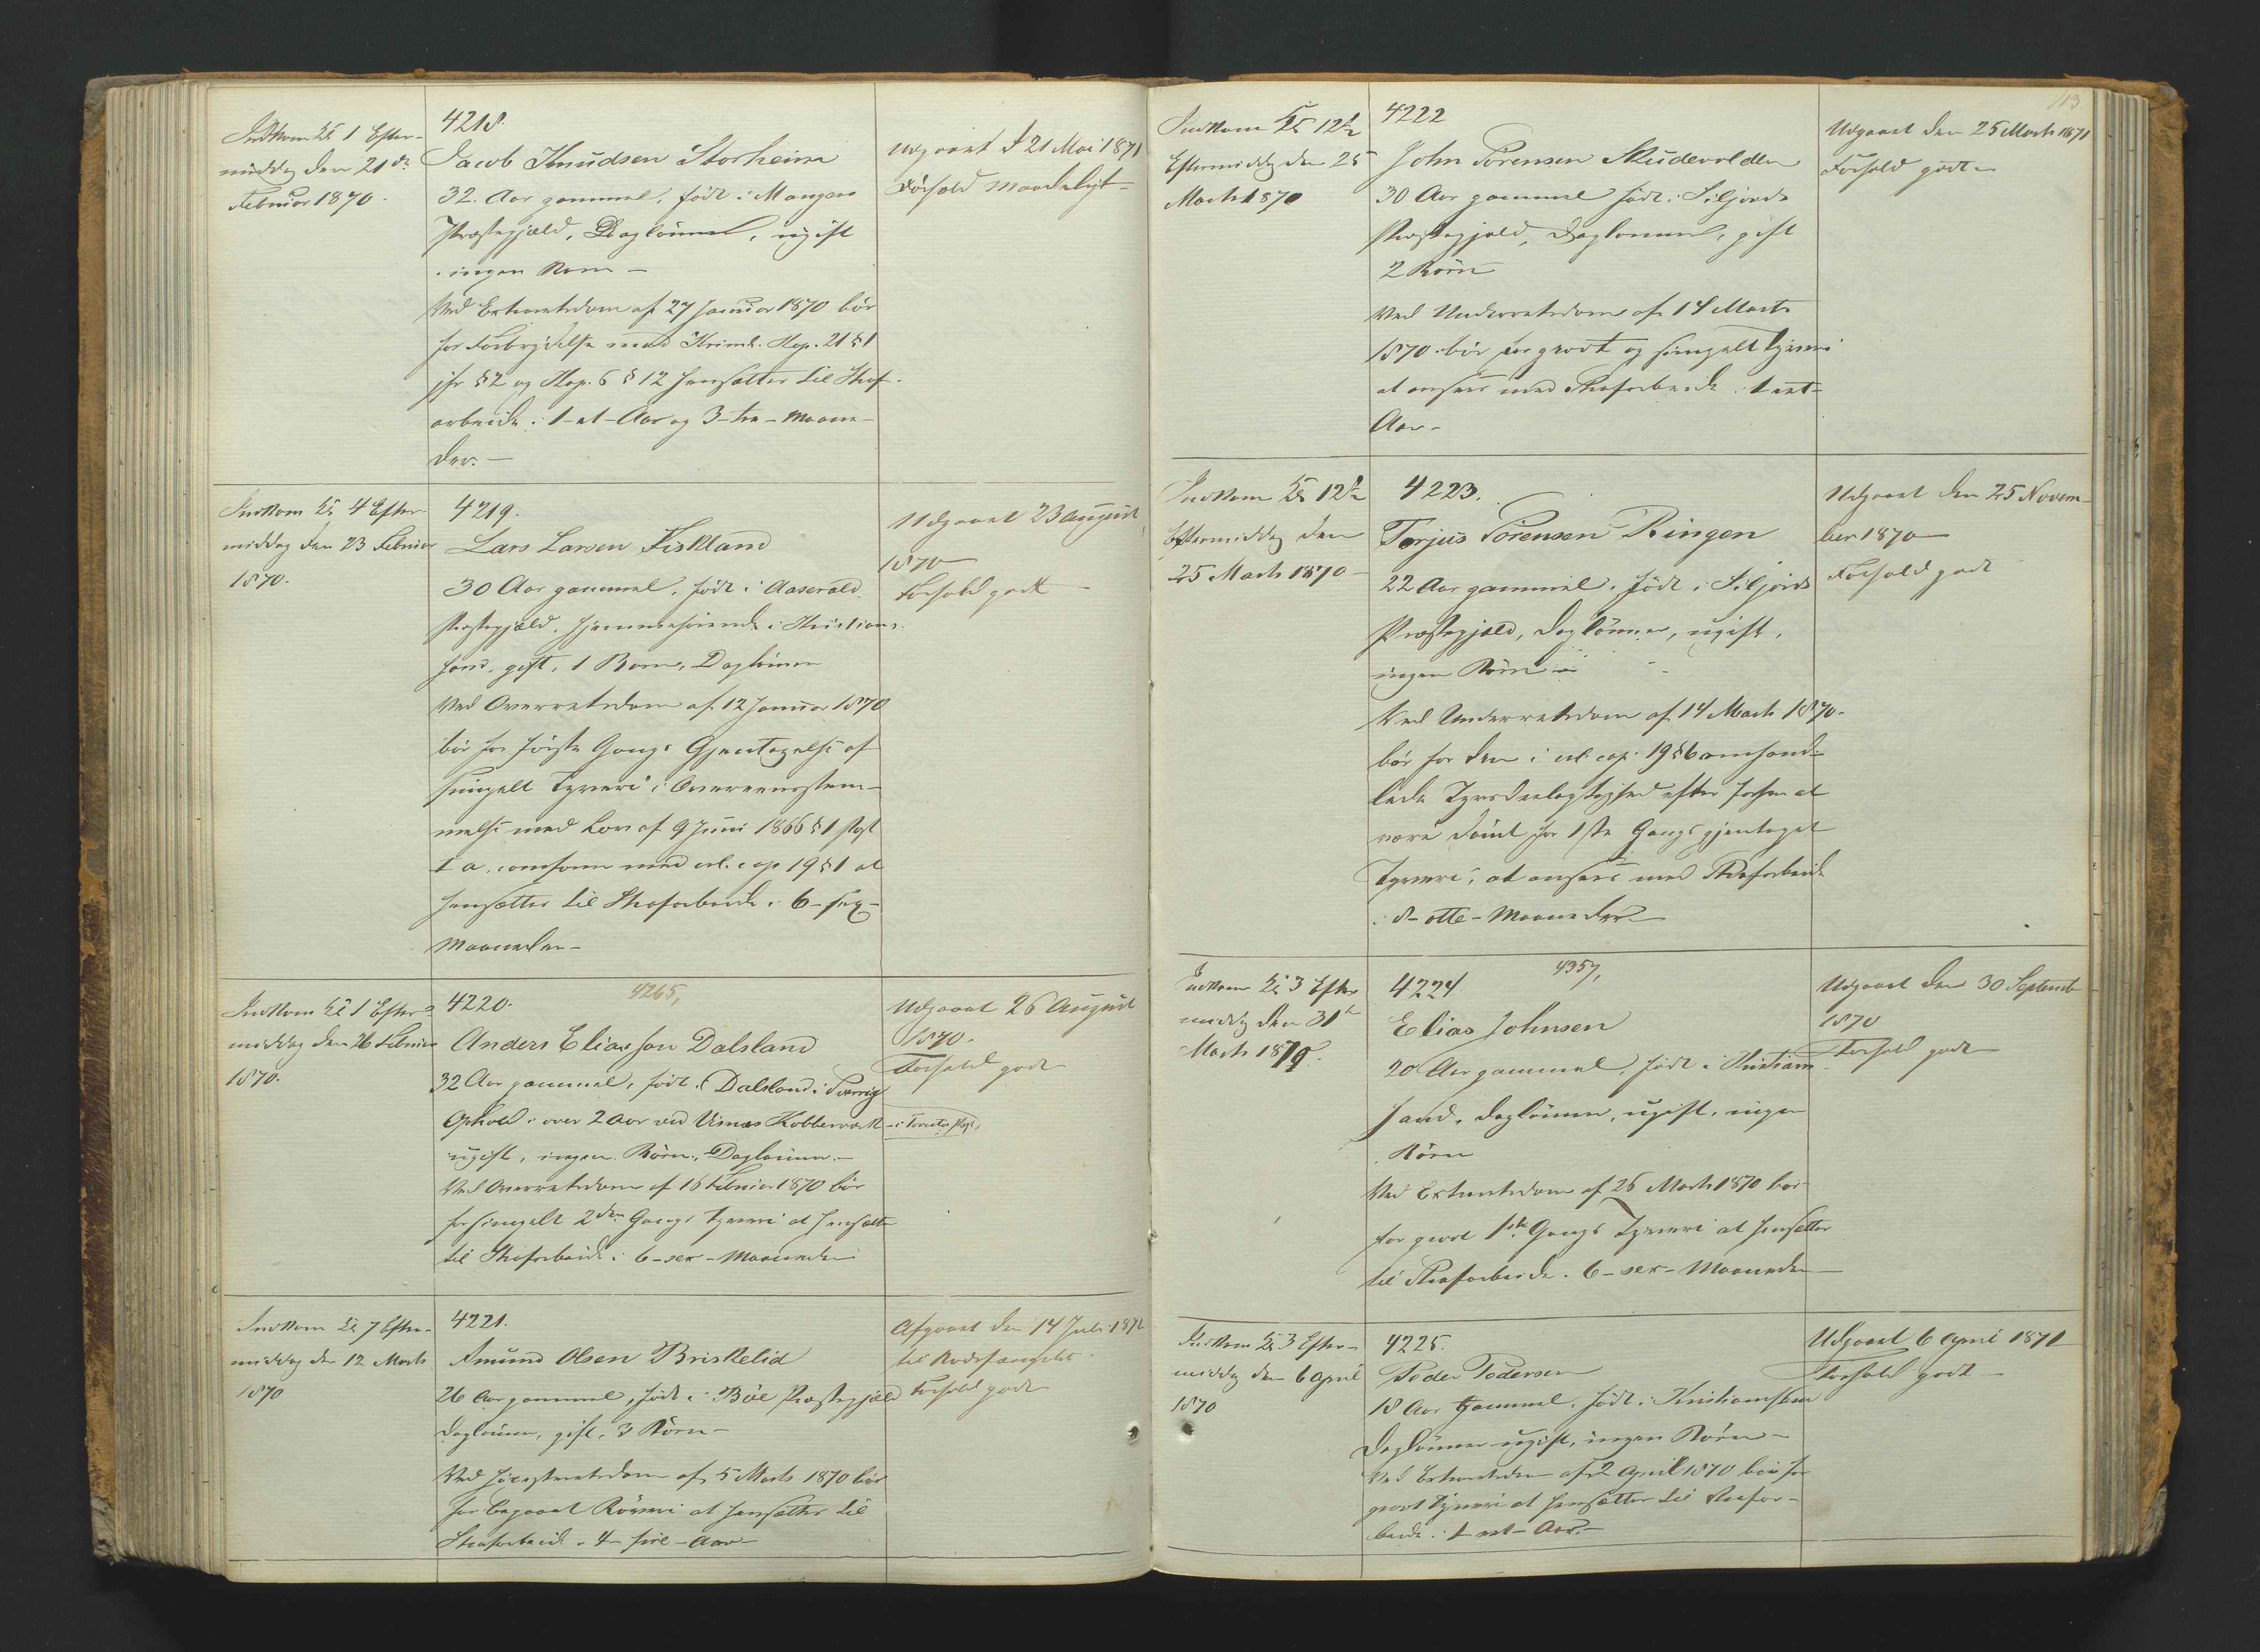 Indkom Kl 1 Efter-
middag den 21de
Februar 1870.
4218.
Jacob Knudsen Storheim
32. Aar gammel, født i Manger
Præstegjæld, Daglønner, ugift
ingen Børn —
Ved Extraretsdom af 27 Januar 1870 bør
for Forbrydelse mod Kriml. Kap. 21 § 1
jfr § 2 og Kap. 6 § 12 hensættes til Straf-
arbeide i 1 - et - Aar og 3 - tre - Maane-
der. —
Udgaaet d 21 Mai 1871
Forhold maadeligt —
Indkom Kl 4 Efter-
middag den 23 Februar
1870.
4219.
Lars Larsen Fiskland
30 Aar gammel, født i Aaserald
Præstegjæld, hjemmehørende i Kristian-
sand, gift, 1 Barn, Daglønner
Ved Overretsdom af 12 Januar 1870
bør for første Gangs Gjentagelse af
simpelt Tyveri i Overeensstem-
melse med Lov af 9 Juni 1866 § 1 Post
1 a, sammen med crl. cap 19 § 1 at
hensættes til Strafarbeide i 6 - sex -
Maaneder —
Udgaaet 23 August
1870 —
Forhold godt —
Indkom Kl 1 Efter-
middag den 26 Februar
1870.
4220. 4265,
Anders Eliasson Dalsland
32 Aar gammel, født i Dalsland i Sverrig
Ophold i over 2 Aar ved Omdals Kobberværk
ugift, ingen Børn, Daglønner. —
Ved Overretsdom af 16 Februar 1870 bør
for simpelt 2den Gangs Tyveri at hensættes
til Strafarbeide i 6 - sex - Maaneder
Udgaaet 26 August
1870.
Forhold godt
Indkom Kl 7 Efter-
middag den 12 Marts
1870
4221.
Amund Olsen Briskelid
26 Aar gammel, født i Bøe Præstegjæld
Daglønner, gift, 3 Børn —
Ved Høiesteretsdom af 5 Marts 1870 bør
for begaaet Røveri at hensættes til
Strafarbeide i 4 - fire - Aar —
Afgaaet den 14 Juli 1871
til Bodsfængslet.
Forhold godt
113.
Indkom Kl 12½
Eftermiddag den 25
Marts 1870
4222
John Sørensen Skudevolden
30 Aar gammel født i Siljords
Præstegjæld, Daglønner, gift
2 Børn
Ved Underretsdom af 14 Marts
1870 bør for grovt og simpelt Tyveri
at ansees med Strafarbeide i 1 - et -
Aar —
Udgaaet den 25 Marts 1871
Forhold godt —
Indkom Kl 12½
Eftermiddag den
25 Marts 1870 —
4223.
Torjus Sørensen Ringen
22 Aar gammel, født i Siljords
Præstegjæld, Daglønner, ugift,
ingen Børn —
Ved Underretsdom af 14 Marts 1870.
bør for den i crl. cap. 19 § 6 omhand-
lede Tyvsdeelagtighed efter forhen at
være dømt for 1ste Gangs gjentaget
Tyveri, at ansees med Strafarbeide
i 8 - otte - Maaneder —
Udgaaet den 25 Novem-
ber 1870 —
Forhold godt
Indkom Kl 3 Efter-
middag den 31te
Marts 1870.
4224 4357,
Elias Johnsen
20 Aar gammel, født i Kristian-
sand, Daglønner, ugift, ingen
Børn
Ved Extraretsdom af 26 Marts 1870 bør
for grovt 1ste Gangs Tyveri at hensættes
til Strafarbeide i 6 - sex - Maaneder —
Udgaaet den 30 September
1870
Forhold godt
Indkom Kl 3 Efter-
middag den 6 April
1870
4225.
Peder Pedersen
18 Aar gammel, født i Kristiansand
Daglønner ugift, ingen Børn —
Ved Extraretsdom af 2 April 1870 bør for
grovt Tyveri at hensættes til Strafar-
beide i 1 - et - Aar. —
Udgaaet 6 April 1871
Forhold godt —